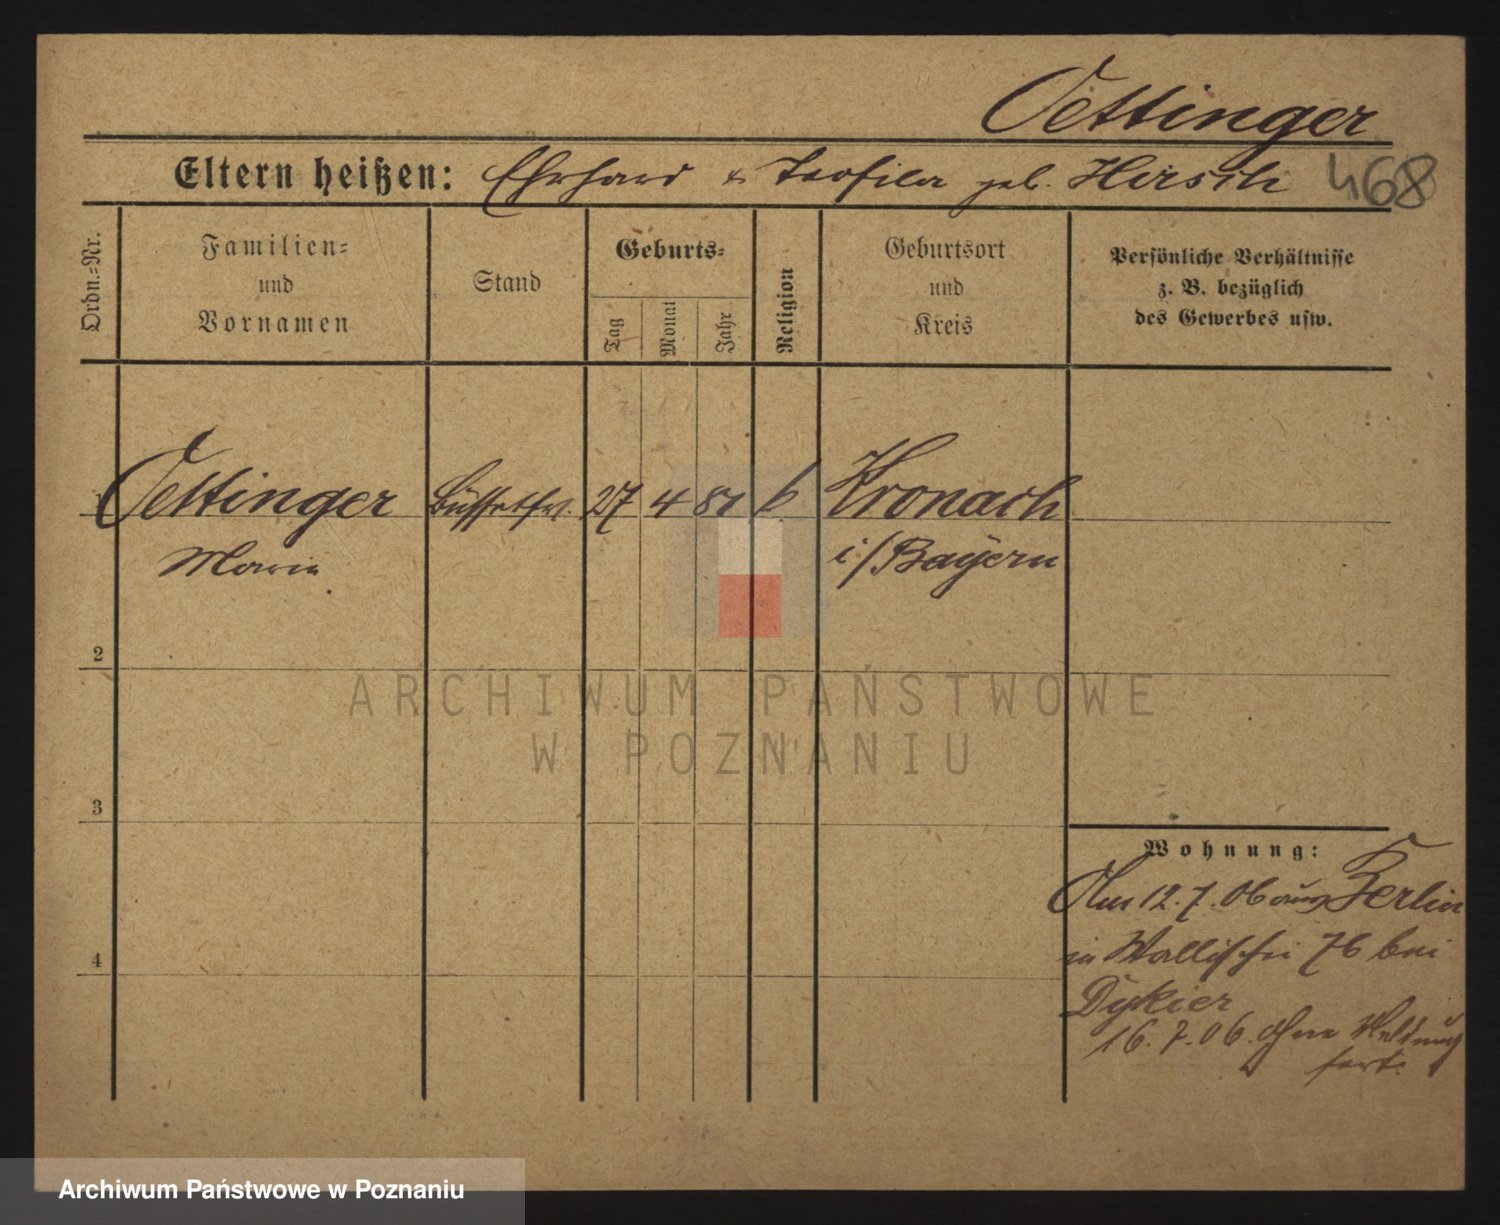 Oettinger
Eltern heißen: Ehrhard & Teofila geb. Hirsch 468
Ordn.-Nr.
Familien-
und
Vornamen
Stand
Geburts-
Tag
Monat
Jahr
Religion
Geburtsort
und
Kreis
Persönliche Verhältnisse
z. B. bezüglich
des Gewerbes usw.
1 Oettinger 27 4 81 Kronach
Marie i/Bayern
2
ARCHIWUM PAŃSTWOWE
W POZNANIU
3
4
Wohnung:
Am 12.7.06 aus Berlin
in Wallischei 76 bei
Dykier
16.7.06. ohne Meldung
fort.
Archiwum Państwowe w Poznaniu